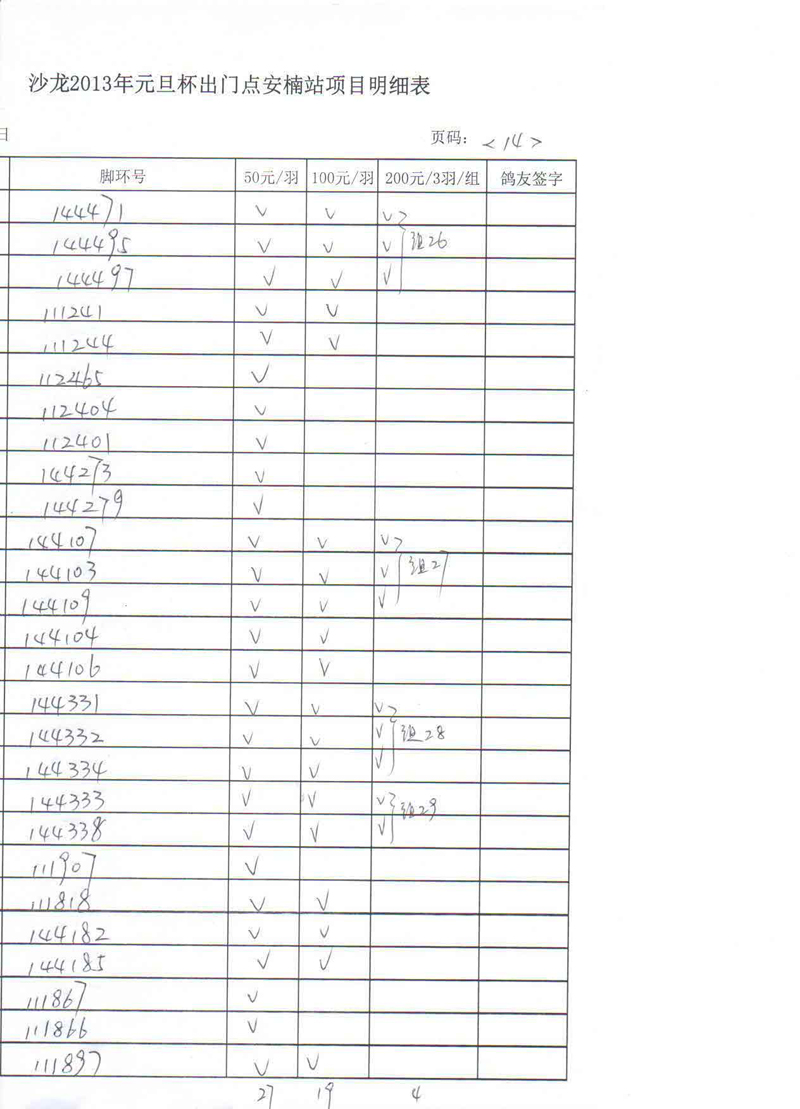 沙龙2013年元旦杯出门点安楠站项目明细表
日 页码: <14>
脚环号 50元/羽 100元/羽 200元/3羽/组 鸽友签字
144471 √ √ √
144495 √ √ √ 组26
144497 √ √ √
111241 √ √
111244 √ √
112465 √
112404 √
112401 √
144273 √
144279 √
144107 √ √ √
144103 √ √ √ 组27
144109 √ √ √
144104 √ √
144106 √ √
144331 √ √ √
144332 √ √ √ 组28
144334 √ √ √
144333 √ √ √ 组29
144338 √ √ √
111907 √
111818 √ √
144182 √ √
144185 √ √
111867 √
111866 √
111897 √ √
27 19 4